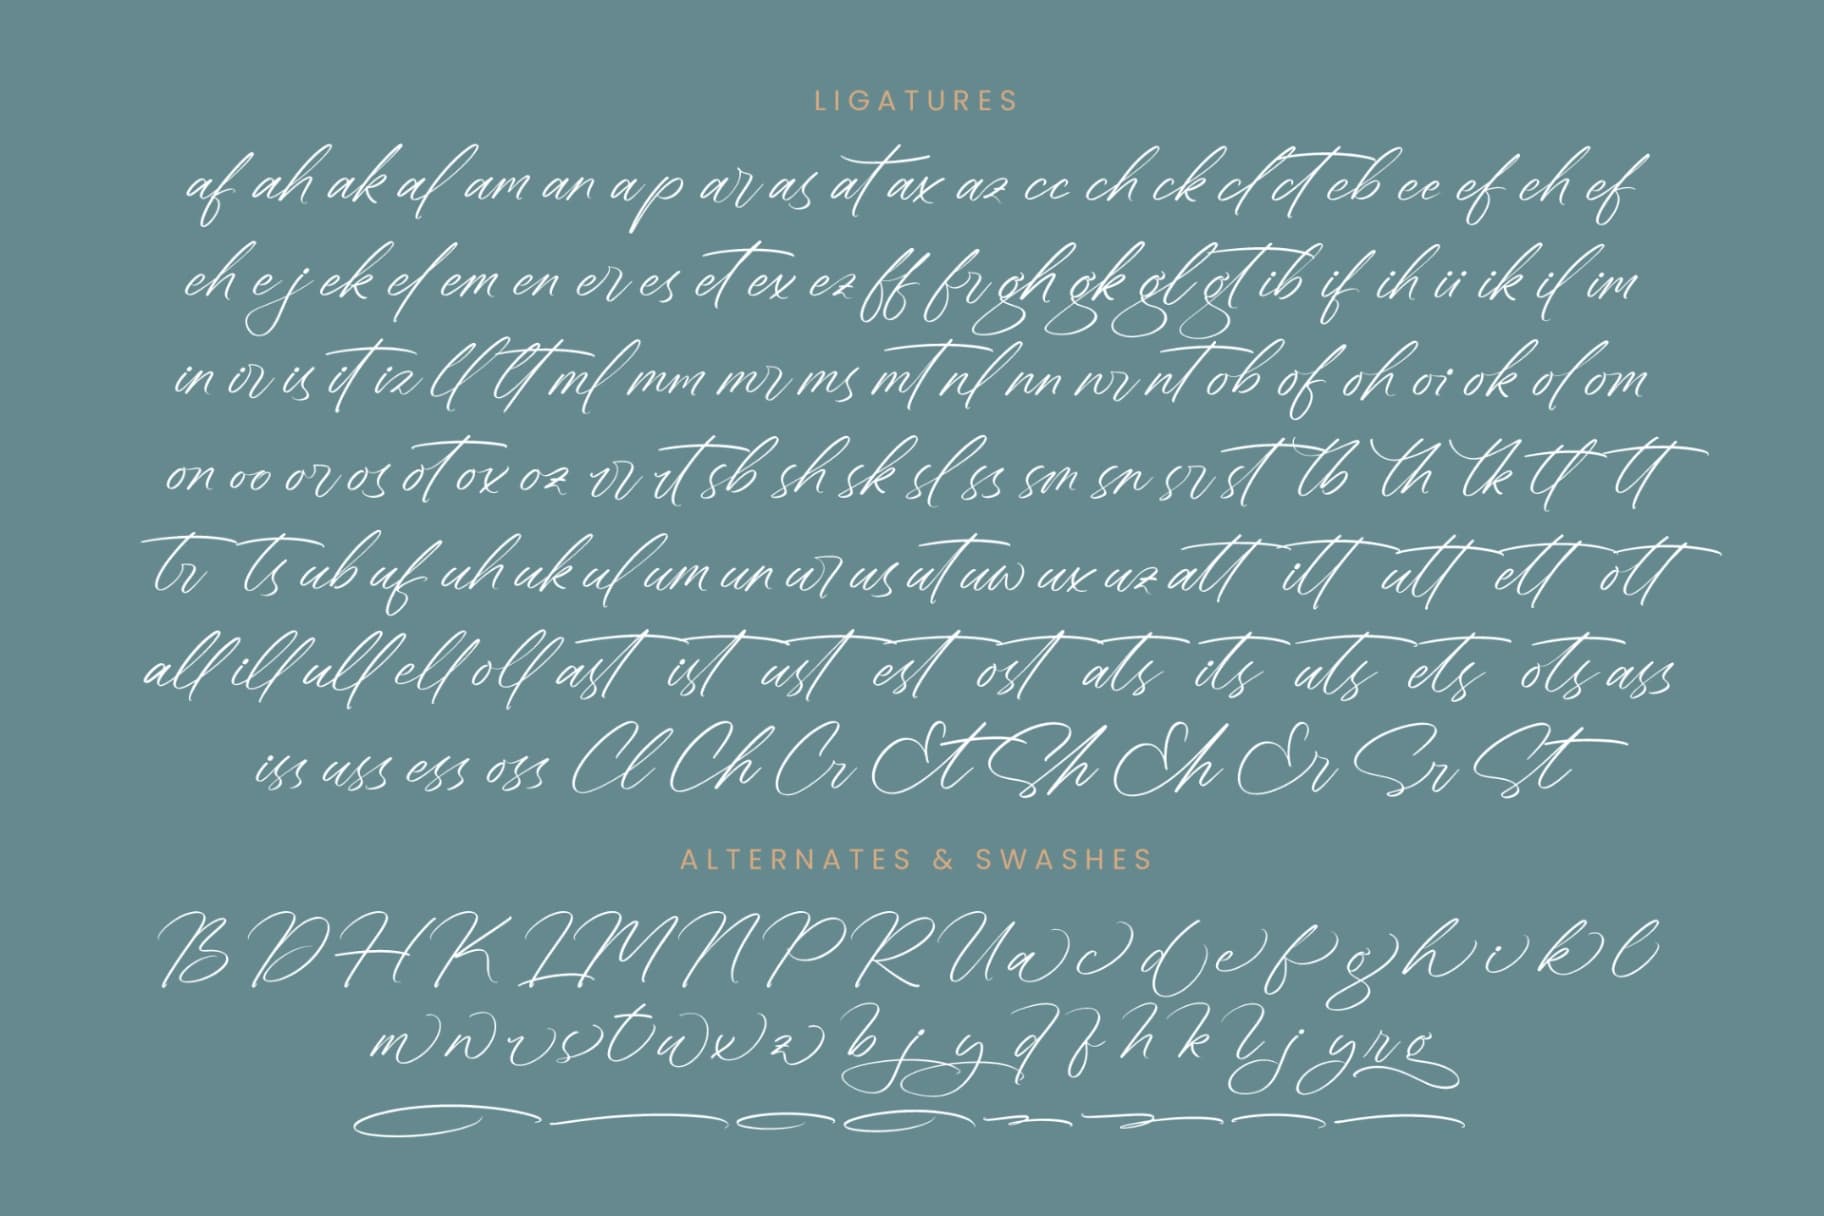 LIGATURES
af ah ak al am an ap ar as at ax az cc ch ck cl ct eb ee ef eh ef
eh ej ek el em en er es et ex ez ff fr gh gk gl gt ib if ih ii ik il im
in ir is it iz ll lt ml mm mr ms mt nl nn nr nt ob of oh oi ok ol om
on oo or os ot ox oz rr rt sb sh sk sl ss sm sn sr st tb th tk tl tt
tr ts ub uf uh uk ul um un ur us ut uw ux uz att itt utt ett ott
all ill ull ell oll ast ist ust est ost ats its uts ets ots ass
iss uss ess oss Cl Ch Cr Et Sh Eh Er Sr St
ALTERNATES & SWASHES
B D H K L M N P R U a c d e f g h i k l
m n r s t u x z b j y d f h k l j y r g